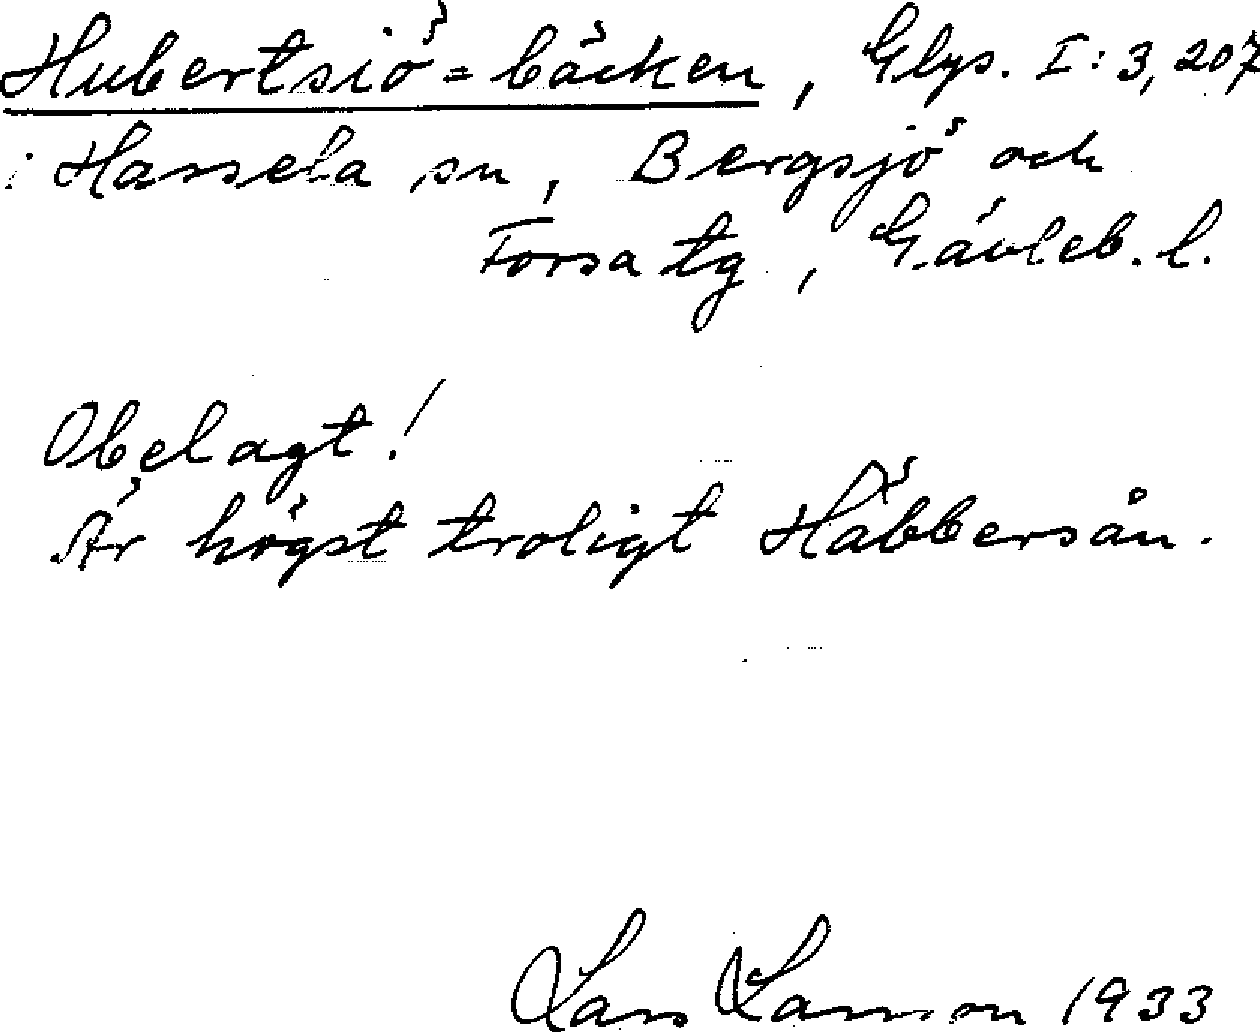 Hubertsiö=bäcken, Glys. I:3,207
i Hassela sn, Bergsjö och
Forsa tg, Gävleb. l.
Obelagt!
Är högst troligt Häbbersån.
Lars Larsson 1933